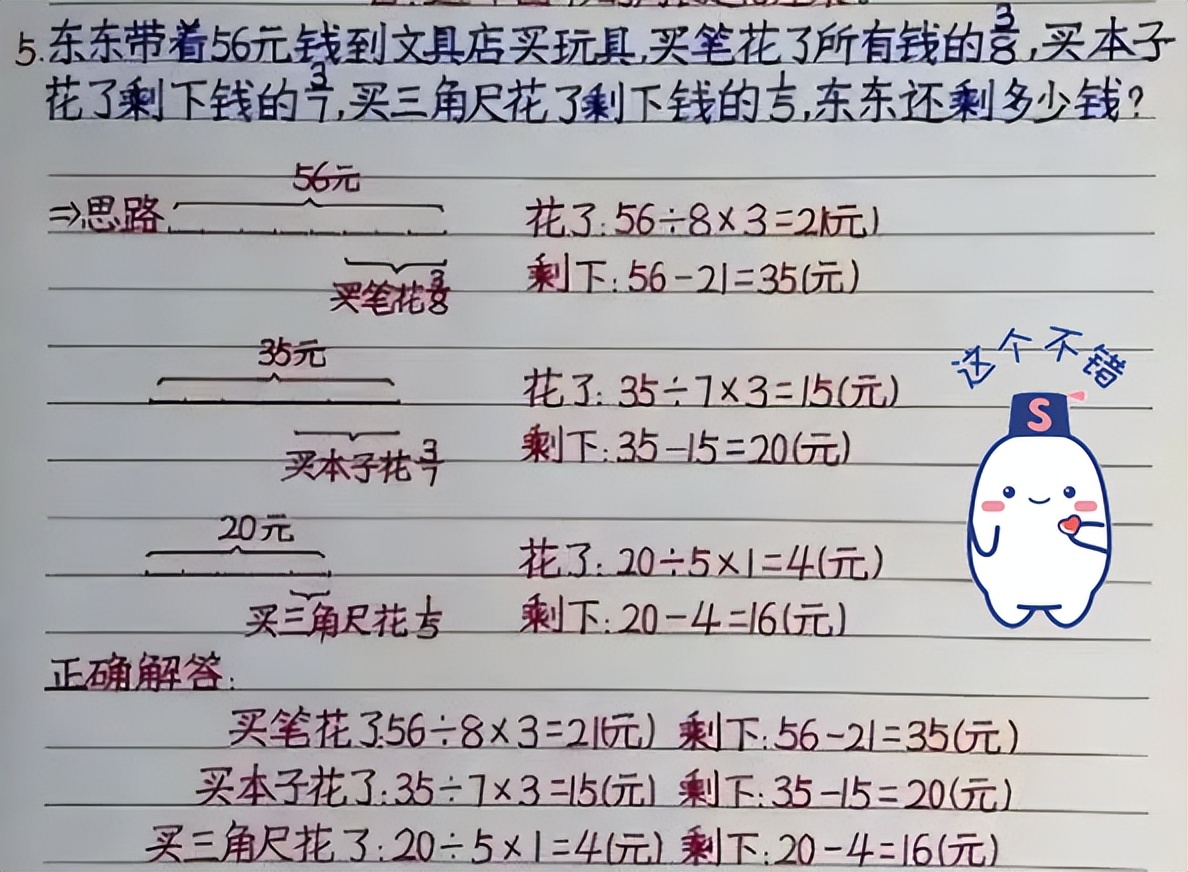 5.东东带着56元钱到文具店买玩具,买笔花了所有钱的3/8,买本子
花了剩下钱的3/7,买三角尺花了剩下钱的1/5,东东还剩多少钱?
56元
⇒思路
花了:56÷8×3=21(元)
买笔花3/8
剩下:56-21=35(元)
35元
花了:35÷7×3=15(元)
买本子花3/7
剩下:35-15=20(元)
这个不错
S
20元
花了:20÷5×1=4(元)
买三角尺花1/5
剩下:20-4=16(元)
正确解答:
买笔花了:56÷8×3=21(元) 剩下:56-21=35(元)
买本子花了:35÷7×3=15(元) 剩下:35-15=20(元)
买三角尺花了:20÷5×1=4(元) 剩下:20-4=16(元)